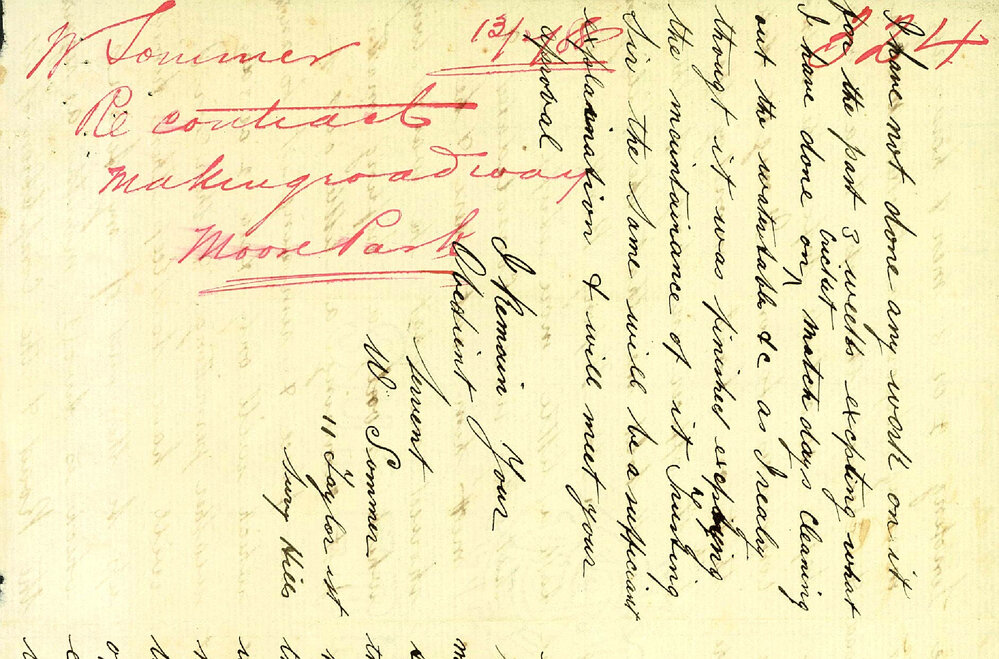 W Sommer
13/4/86
324
Re contract
Making roadway
Moore Park
I have not done any work on it
for the past 3 weeks excepting what
I have done on cricket match days cleaning
out the watertable &c as I realay
thougt it was finished excepting
the mountainance of it Trusting
Sir the Same will be a sufficiant
explaination & will meet your
aproval
I Remain Your
Obedient
Servent
W Sommer
11 Taylor ist
Surry Hills